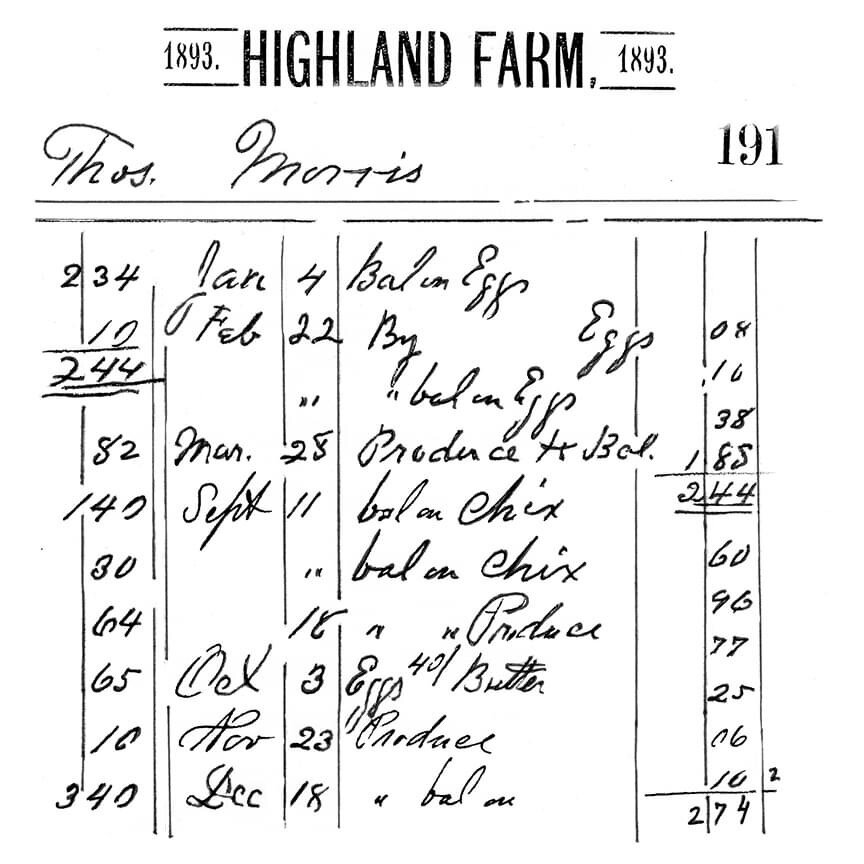 1893. HIGHLAND FARM, 1893.
Thos. Morris 191
2 34 Jan 4 Bal on Eggs
10 Feb 22 By Eggs 08
2 44 " " bal on Eggs .10
38
82 Mar. 28 Produce to Bal. 1 88
1 40 Sept 11 bal on Chix 2 44
30 " bal on Chix 60
64 18 " " Produce 96
77
65 Oct 3 Eggs 40/ Butter 25
10 Nov 23 " Produce 06
3 40 Dec 18 " bal on 10 2
2 74